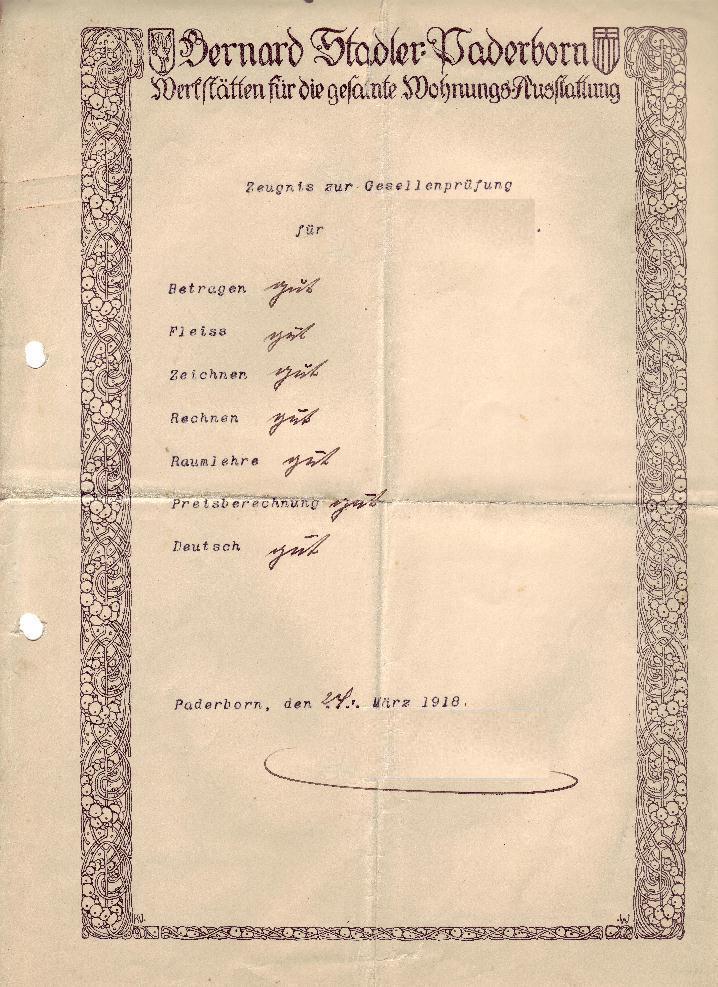 Bernard Stadler-Paderborn
Werkstätten für die gesamte Wohnungs-Ausstattung
Zeugnis zur Gesellenprüfung
für
Betragen gut
Fleiss gut
Zeichnen gut
Rechnen gut
Raumlehre gut
Preisberechnung gut
Deutsch gut
Paderborn, den März 1918.